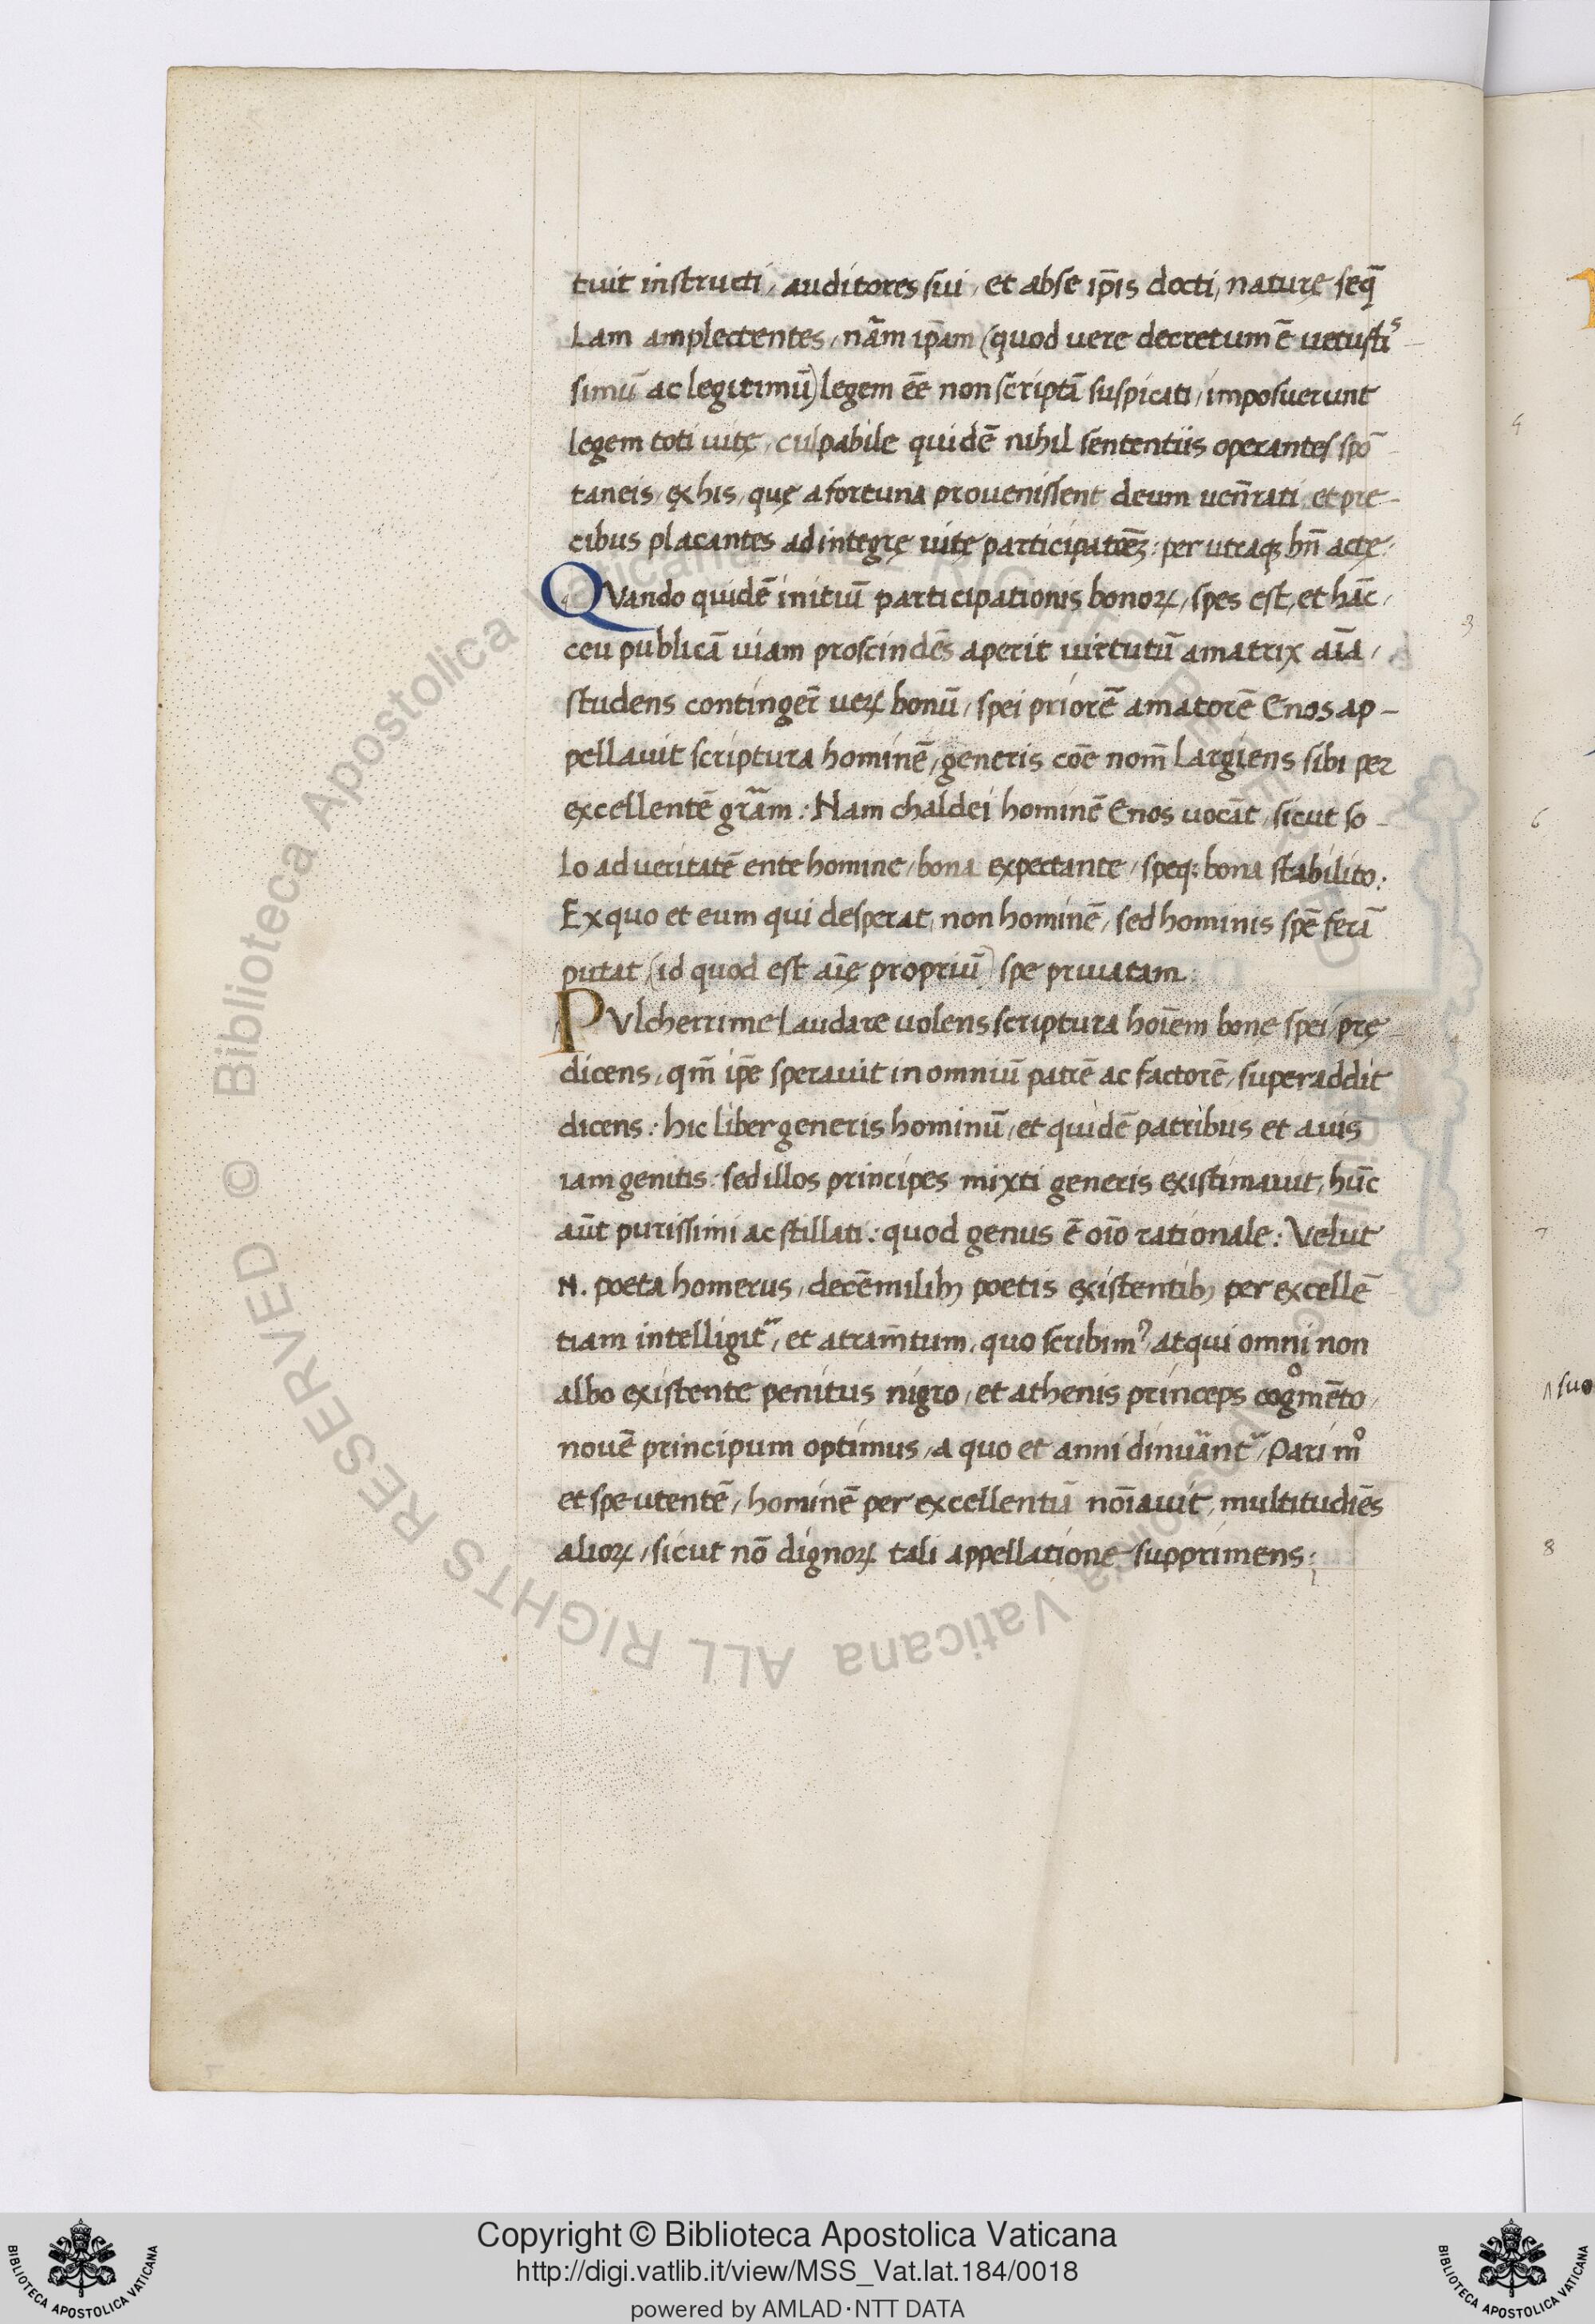 tuit instructi, auditores sui, et abse ip̄is docti, naturę seq̄
lam amplectentes, nām ip̄am (quod uere decretum ē uetustis
simū ac legitimū) legem eē non scriptā suspicati, imposuerunt
legem toti uitę, culpabile quidē nihil sententiis operantes spō
taneis, ex his, quę a fortuna prouenissent deum uen̄rati, et pre-
cibus placantes ad integrę uitę participatōeꝫ: per utraqꝫ bn̄ actę:
QVando quidē initiū participationis bonoꝝ, spes est, et hāc,
ceu publicā uiam proscindēs aperit uirtutū amatrix aīa,
studens continger̄ ueꝝ bonū, spei priorē amatorē Enos ap-
pellauit scriptura hominē, generis cōe nom̄ largiens sibi per
excellentē gr̄am: Nam chaldei hominē Enos uocāt, sicut so
lo ad ueritatē ente homine, bona expectante, speqꝫ bona stabilito:
Ex quo et eum qui desperat, non hominē, sed hominis spē ferā
putat (id quod est aīę propriū) spe priuatam:
PVlcherrime laudare uolens scriptura hoīem bonę spei, prę
dicens, qm̄ ip̄e sperauit in omniū patrē ac factorē, superaddit
dicens: hic liber generis hominū, et quidē patribus et auis
iam genitis: sed illos principes mixti generis existimauit, hūc
aūt purissimi ac stillati: quod genus ē oīo rationale: Velut
N. poeta homerus, decē milibꝫ poetis existentibꝫ per excellē
tiam intelligit᷑, et atram̄tum, quo scribimꝰ, atqui omni non
albo existente penitus nigro, et athenis princeps cogᵒmēto,
nouē principum optimus, a quo et anni dinūant᷑, Pari mº
et spe utentē, hominē per excellentiā noīauit, multitudiēs
alioꝝ, sicut nō dignoꝝ tali appellatione supprimens:
4
3
6
7
suo
8
© Biblioteca Apostolica Vaticana ALL RIGHTS RESERVED
Copyright © Biblioteca Apostolica Vaticana
http://digi.vatlib.it/view/MSS_Vat.lat.184/0018
powered by AMLAD·NTT DATA
BIBLIOTECA APOSTOLICA VATICANA
BIBLIOTECA APOSTOLICA VATICANA